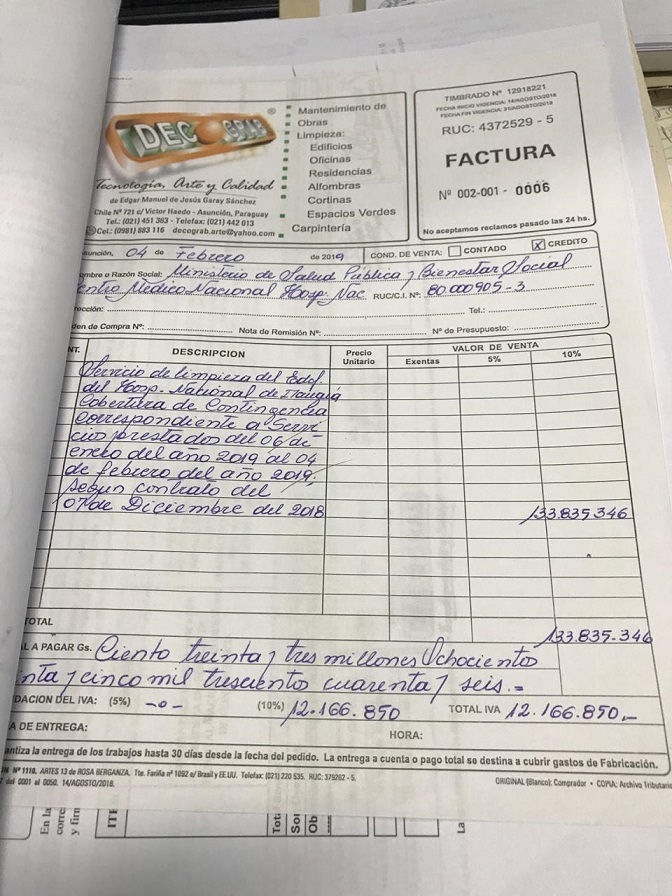 DECOGRAB ®
Tecnología, Arte y Calidad
de Edgar Manuel de Jesús Garay Sánchez
Chile Nº 721 c/ Víctor Haedo - Asunción, Paraguay
Tel.: (021) 451 363 - Telefax: (021) 442 013
Cel.: (0981) 883 116 decograb.arte@yahoo.com
Mantenimiento de
Obras
Limpieza:
Edificios
Oficinas
Residencias
Alfombras
Cortinas
Espacios Verdes
Carpintería
TIMBRADO Nº 12918221
FECHA INICIO VIGENCIA: 14/AGOSTO/2018
FECHA FIN VIGENCIA: 31/AGOSTO/2019
RUC: 4372529 - 5
FACTURA
Nº 002-001 - 0006
No aceptamos reclamos pasado las 24 hs.
unción, 04 de Febrero de 2019 COND. DE VENTA: CONTADO X CREDITO
mbre o Razón Social: Ministerio de Salud Pública y Bienestar Social
entro Medico Nacional Hosp. Nac RUC/C.I. Nº: 80000905-3
rección: Tel.:
den de Compra Nº: Nota de Remisión Nº: Nº de Presupuesto:
NT. DESCRIPCION Precio Unitario VALOR DE VENTA
Exentas 5% 10%
Servicio de limpieza del Edif.
del Hosp. Nacional de Itauguá
Cobertura de Contingencia
correspondiente a Servi
cios prestados del 06 de
enero del año 2019 al 04
de febrero del año 2019.
segun contrato del
07 de Diciembre del 2018 133.835.346
TOTAL 133.835.346
L A PAGAR Gs. Ciento treinta y tres millones Ochociento
nta y cinco mil tresciento cuarenta y seis.=
DACION DEL IVA: (5%) -o- (10%) 12.166.850 TOTAL IVA 12.166.850,-
A DE ENTREGA: HORA:
antiza la entrega de los trabajos hasta 30 días desde la fecha del pedido. La entrega a cuenta o pago total se destina a cubrir gastos de Fabricación.
N Nº 1116. ARTES 13 de ROSA BERGANZA. Tte. Fariña nº 1092 e/ Brasil y EE.UU. Telefax: (021) 220 535. RUC: 379262 - 5.
del 0001 al 0050. 14/AGOSTO/2018.
ORIGINAL (Blanco): Comprador • COPIA: Archivo Tributario
En la
corre
y firn
ITE
Tota
Son
Ob
La